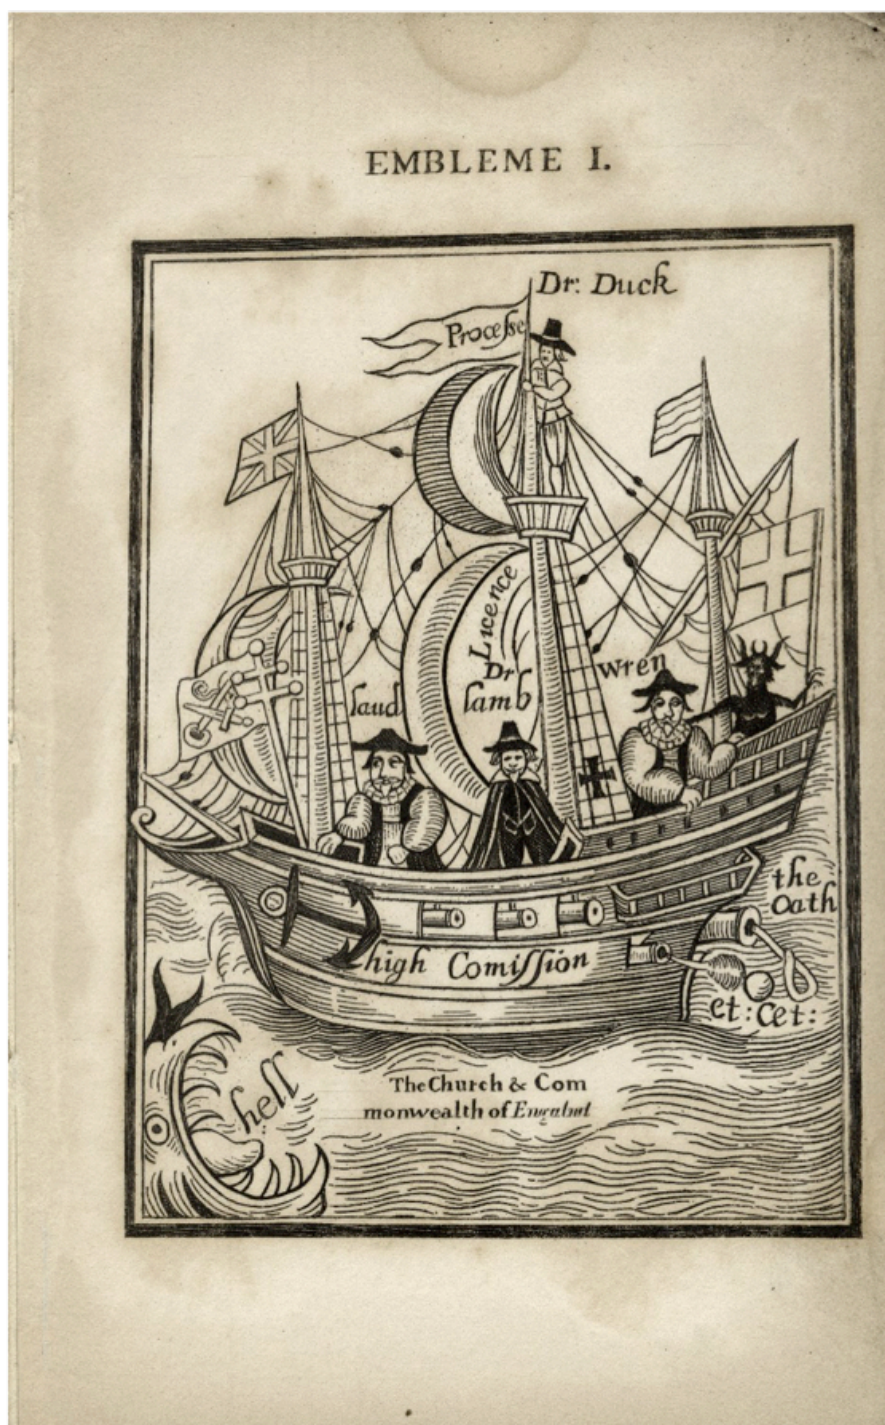 EMBLEME I.
Dr: Duck
Proceſse
Licence
Dr
lamb
laud
wren
the
Oath
high Comiſſion
et: Cet:
hell
The Church & Com
monwealth of